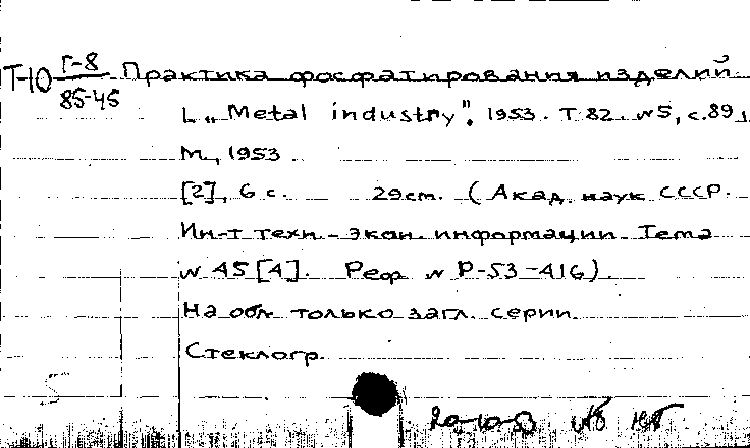 Т-10 Г-8/85-45 Практика фосфатирования изделий.
L„Metal industry". 1953. Т 82. №5, с.89,
М., 1953
[2], 6 с. 29см. (Акад. наук СССР.
Ин-т техн-экон. информации. Тема
№ А5[А]. Реф № Р-53-416).
На обл только загл. серии.
Стеклогр.
20-10-53